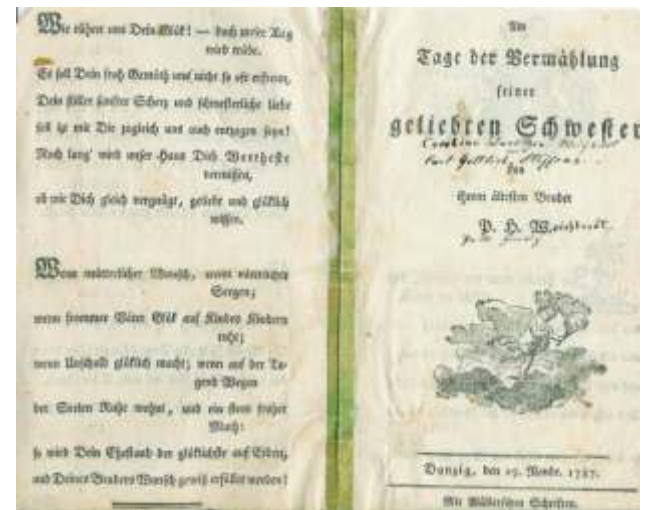 Wir rühmen uns Dein Glük! — doch unser Aug
wird trübe.
Es soll Dein froh Gemüth uns nicht so oft erfreun,
Dein stiller sanfter Scherz und schwesterliche Liebe
soll izt mit Dir zugleich uns auch entzogen seyn!
Noch lang' wird unser Haus Dich Wertheste
vermissen,
ob wir Dich gleich vergnügt, geliebt und glüklich
wissen.
Wenn mütterlicher Wunsch, wenn väterliches
Sorgen;
wenn frommer Väter Glük auf Kindes Kindern
ruht;
wenn Unschuld glüklich macht; wenn auf der Tu-
gend Wegen
der Seelen Ruhe wohnt, und ein stets froher
Muth:
so wird Dein Ehestand der glüklichste auf Erden,
und Deines Bruders Wunsch gewiß erfüllet werden!
Am
Tage der Vermählung
seiner
geliebten Schwester
Carl Gottlieb
von
ihrem ältesten Bruder
P. H. W
Danzig, den 29. Novbr. 1787.
Mit Müllerschen Schriften.